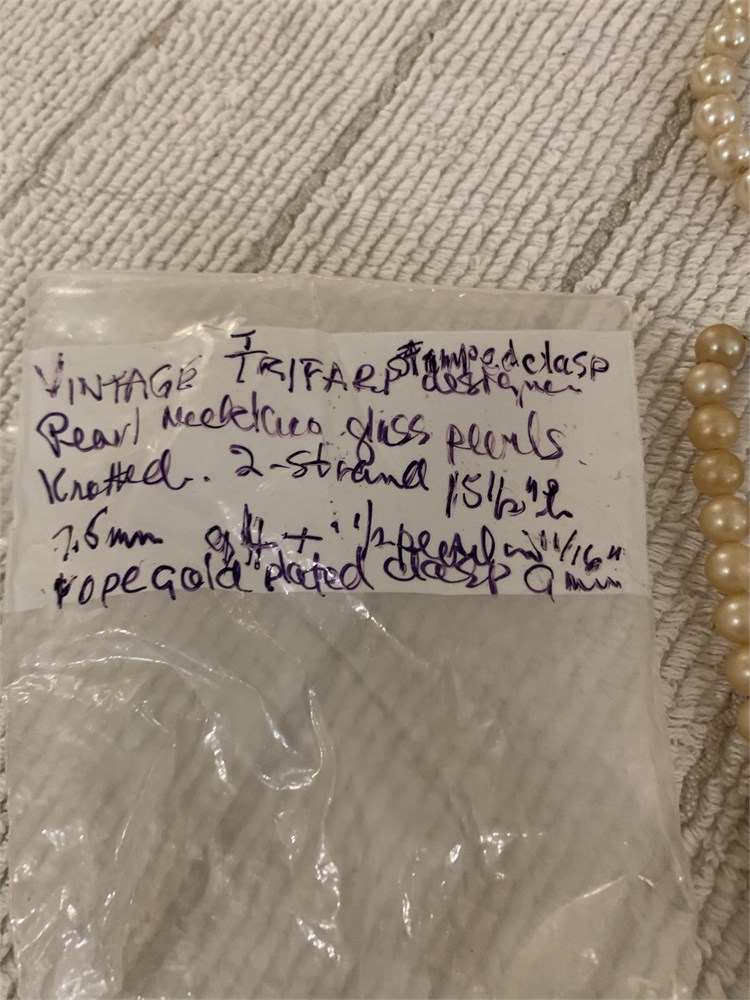 VINTAGE TRIFARI stamped clasp
designer
Pearl Necklace glass pearls
Knotted. 2-Strand 15 1/2"
7.5mm + 1/2 11/16"
rope gold plated clasp 9 mm